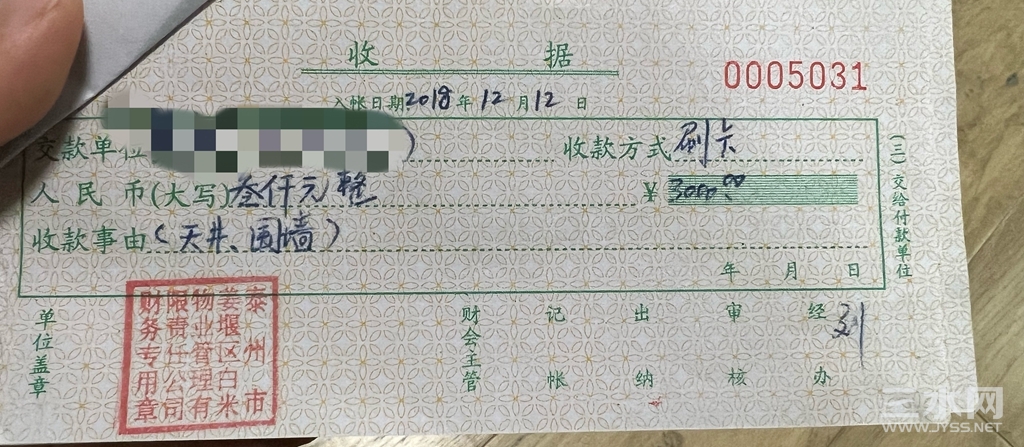 收 据
0005031
入帐日期2018年12月12日
交款单位 ) 收款方式 刷卡
人民币(大写) 叁仟元整 ¥ 3000.00
收款事由(天井、围墙)
年 月 日
(三)交给付款单位
单位盖章
泰州市姜堰区白米物业管理有限责任公司财务专用章
财会主管 记帐 出纳 审核 经办 刘
三水网
WWW.JYSS.NET